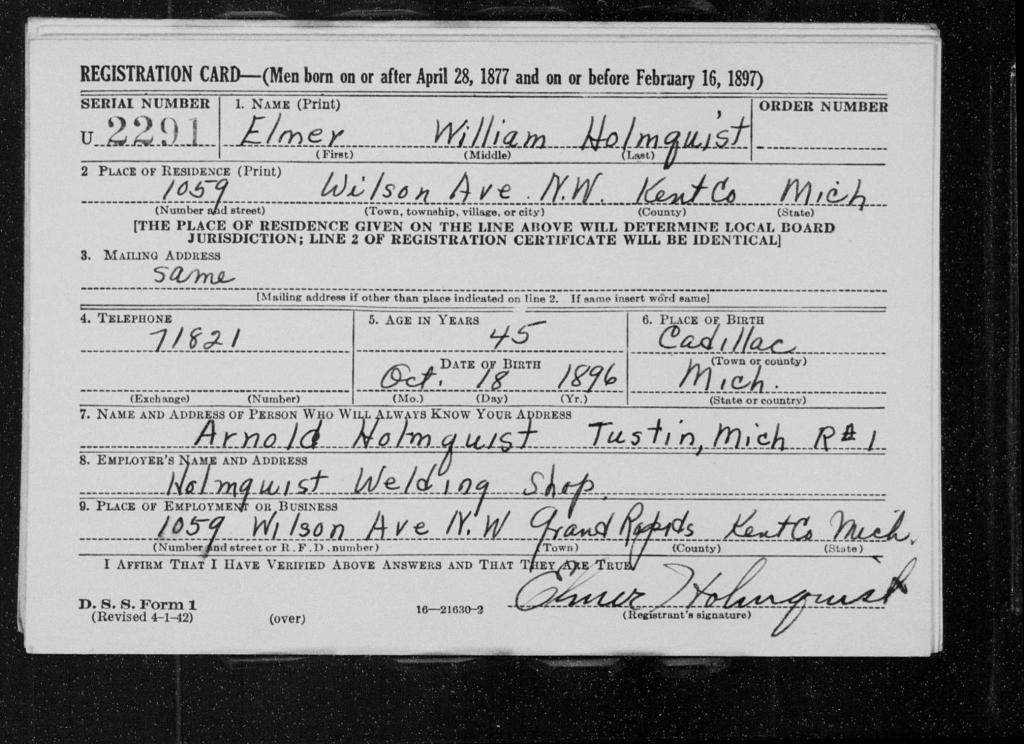 REGISTRATION CARD—(Men born on or after April 28, 1877 and on or before February 16, 1897)
SERIAL NUMBER 1. NAME (Print) ORDER NUMBER
U 2291 Elmer William Holmquist
(First) (Middle) (Last)
2 PLACE OF RESIDENCE (Print)
1059 Wilson Ave. N.W. Kent Co Mich
(Number and street) (Town, township, village, or city) (County) (State)
[THE PLACE OF RESIDENCE GIVEN ON THE LINE ABOVE WILL DETERMINE LOCAL BOARD
JURISDICTION; LINE 2 OF REGISTRATION CERTIFICATE WILL BE IDENTICAL]
3. MAILING ADDRESS
same
[Mailing address if other than place indicated on line 2. If same insert word same]
4. TELEPHONE 5. AGE IN YEARS 6. PLACE OF BIRTH
71821 45 Cadillac
DATE OF BIRTH (Town or county)
Oct. 18 1896 Mich.
(Exchange) (Number) (Mo.) (Day) (Yr.) (State or country)
7. NAME AND ADDRESS OF PERSON WHO WILL ALWAYS KNOW YOUR ADDRESS
Arnold Holmquist Tustin, Mich R#1
8. EMPLOYER'S NAME AND ADDRESS
Holmquist Welding Shop.
9. PLACE OF EMPLOYMENT OR BUSINESS
1059 Wilson Ave N.W Grand Rapids Kent Co Mich.
(Number and street or R. F. D. number) (Town) (County) (State)
I AFFIRM THAT I HAVE VERIFIED ABOVE ANSWERS AND THAT THEY ARE TRUE.
Elmer Holmquist
D. S. S. Form 1 16—21630-2 (Registrant's signature)
(Revised 4-1-42) (over)